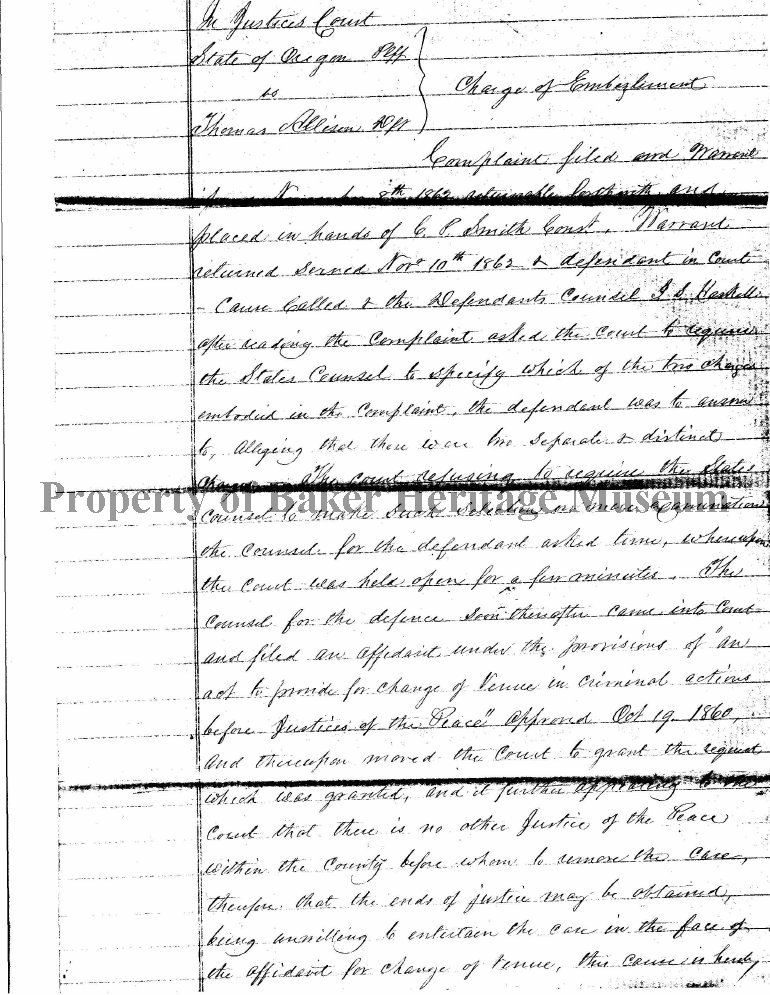 In Justices Court
State of Oregon Plff
vs
Thomas Allison Dft
Charge of Embezlement
Complaint filed and Warrant
8th 1862 returnable forthwith and
placed in hands of C. P. Smith Const, Warrant
returned served Nov 10th 1862 & defendant in Court
- Cause Called & the Defendants Counsel
after reading the Complaint asked the Court to require
the States Counsel to specify which of the two charges
embodied in the Complaint, the defendant was to answer
to, alleging that there were two separate & distinct
The Court refusing to require the States
Property of Baker Heritage Museum
Counsel to make such on mere examination
the Counsel for the defendant asked time, whereupon
the Court was held open for a few minutes. The
Counsel for the defence soon thereafter came into Court
and filed an affidavit under the provisions of "an
act to provide for change of Venue in Criminal actions
before Justices of the Peace" Approved Oct 19. 1860,
and thereupon moved the Court to grant the request
which was granted, and it further appearing to the
Court that there is no other Justice of the Peace
within the County before whom to remove the Case,
therefore that the ends of justice may be obtained,
being unwilling to entertain the case in the face of
the affidavit for change of Venue, this cause is hereby